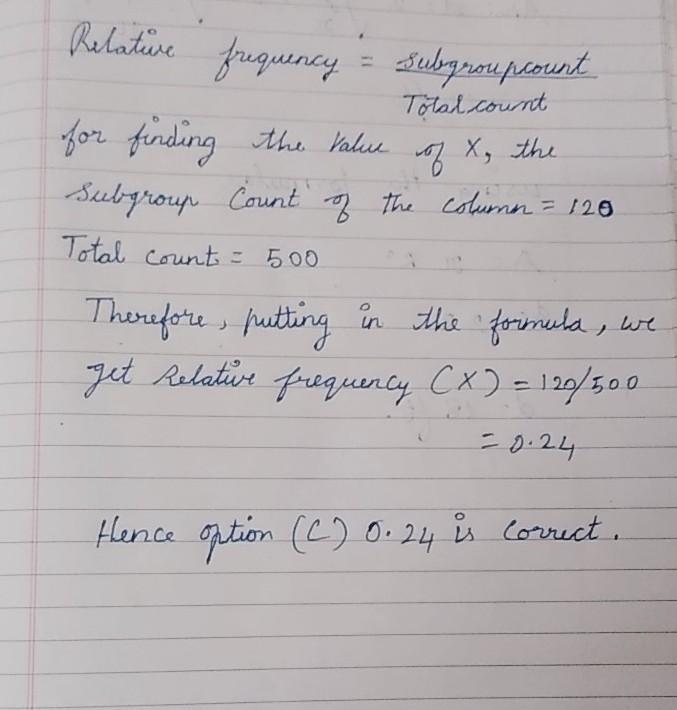 Relative frequency = subgroupcount
Total count
for finding the Value of X, the
Subgroup Count of the column = 120
Total count = 500
Therefore, putting in the formula, we
get Relative frequency (X) = 120/500
= 0.24
Hence option (C) 0.24 is correct.